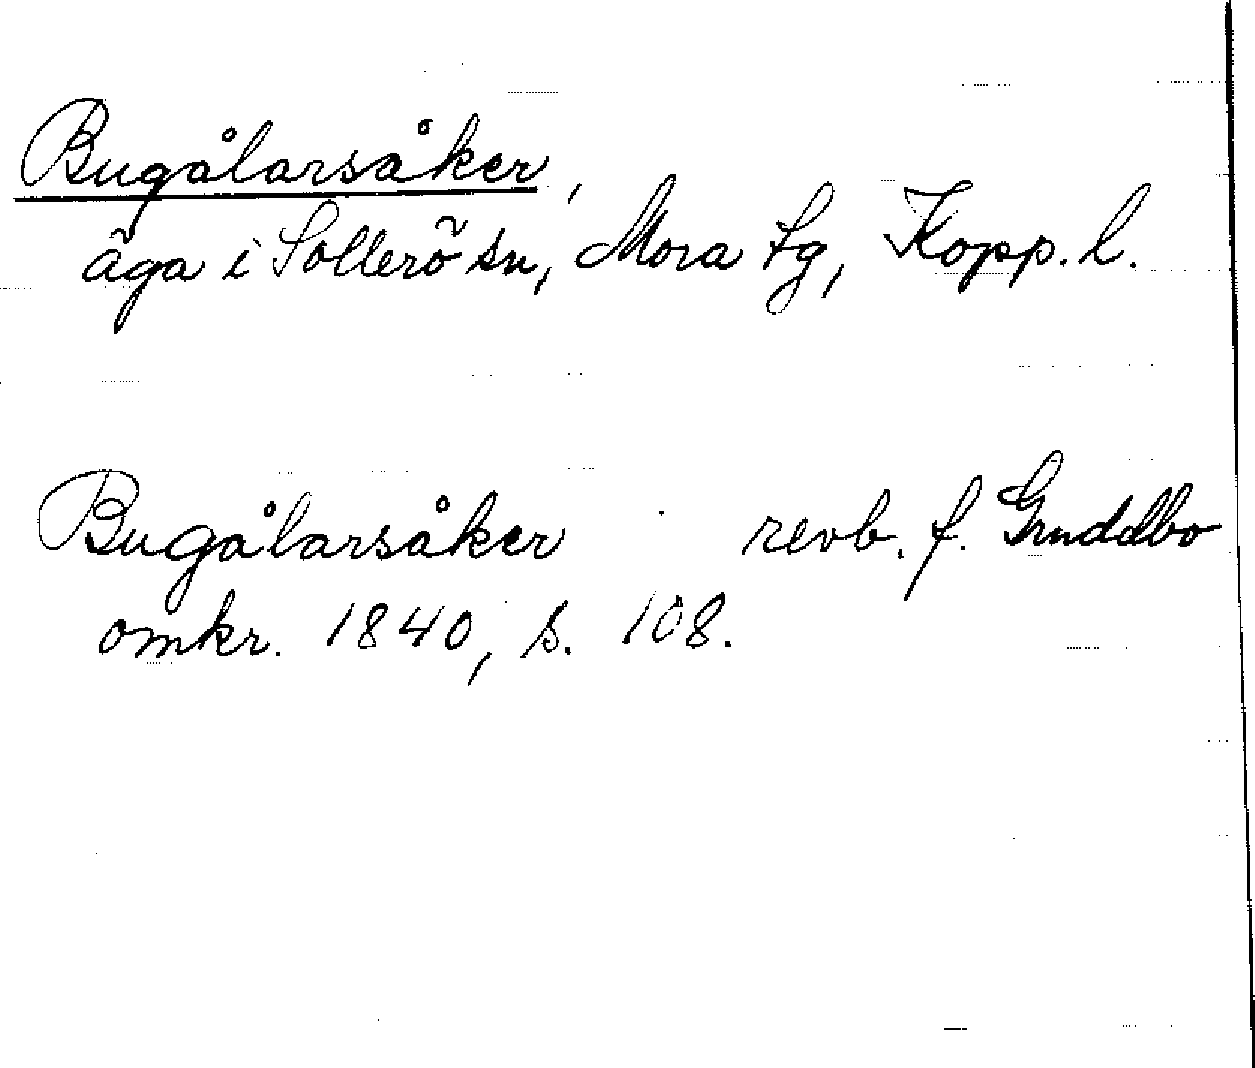 Bugålarsåker,
äga i Sollerö sn, Mora tg, Kopp. l.
Bugålarsåker revb. f. Gruddbo
omkr. 1840, s. 108.